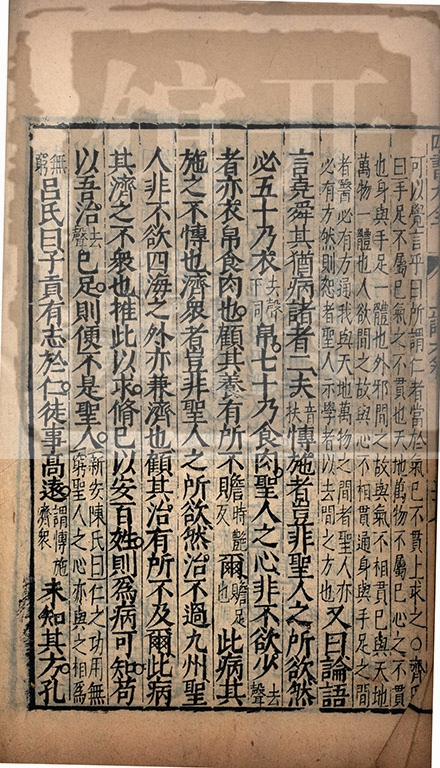 可以覺言乎曰所謂仁者當於氣已不貫上求之○齊氏
曰手足不屬己氣之不貫也天地萬物不屬己心之不貫
也身與手足一體也外邪間之故與氣不相貫己與天地
萬物一體也人欲間之故與心不相貫通身與手足之間
者醫必有方通我與天地萬物之間者聖人亦
必有方然則恕者聖人示學者以去間之方也又曰論語
言堯舜其猶病諸者二夫音扶博施者豈非聖人之所欲然
必五十乃衣去聲下同帛七十乃食肉聖人之心非不欲少去聲
者亦衣帛食肉也顧其養有所不贍時艷反爾贍足也此病其
施之不博也濟衆者豈非聖人之所欲然治不過九州聖
人非不欲四海之外亦兼濟也顧其治有所不及爾此病
其濟之不衆也推此以求脩己以安百姓則爲病可知苟
以吾治去聲已足則便不是聖人新安陳氏曰仁之功用無窮聖人之心亦與之相爲
無窮呂氏曰子貢有志於仁徒事高遠謂博施濟衆未知其方孔